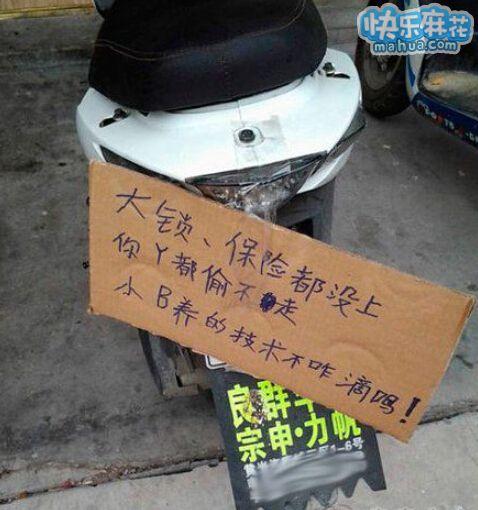 快乐麻花
mahua.com
大锁、保险都没上
你丫都偷不走
小B养的技术不咋滴吗！
良群
宗申·力帆